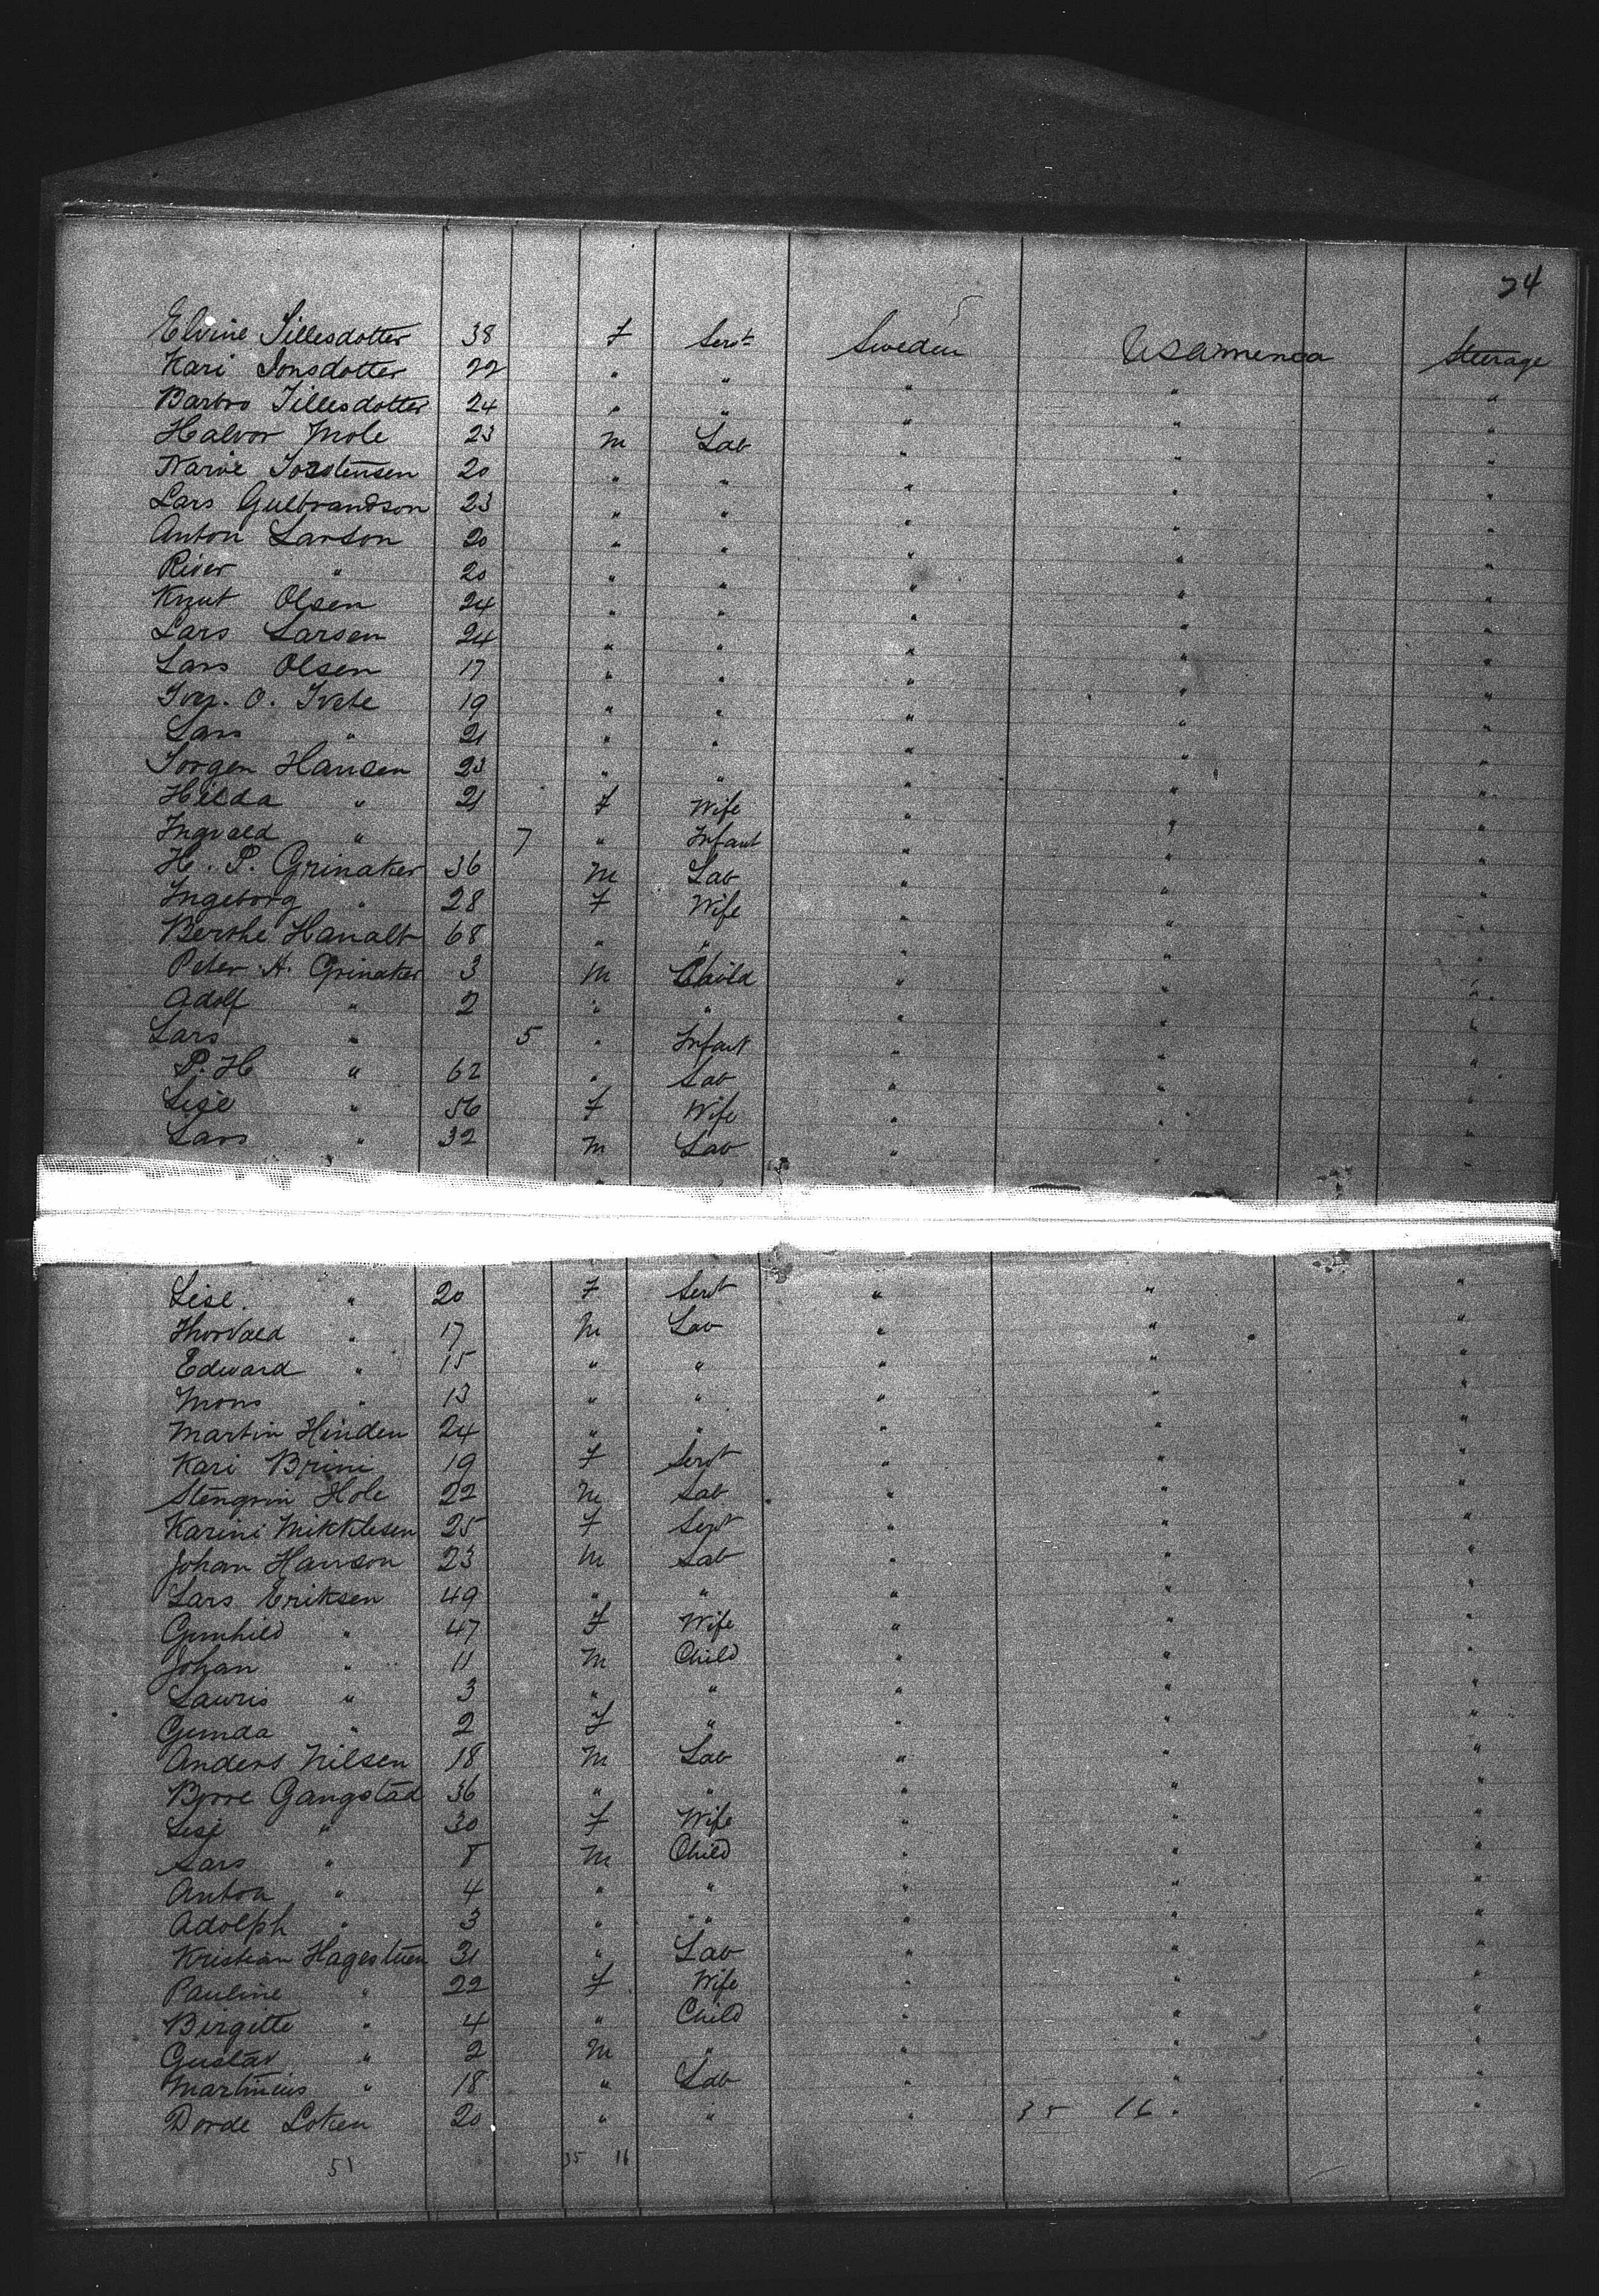 24
Elvine Tillesdotter 38 F Servt Sweden USAmerica Steerage
Kari Jonsdotter 22 " " " " "
Barbro Tillesdotter 24 " " " " "
Halvor Mole 23 M Lab " " "
Narve Torstensen 20 " " " " "
Lars Gulbrandson 23 " " " " "
Anton Larson 20 " " " " "
River " 20 " " " " "
Knut Olsen 24 " " " " "
Lars Larsen 24 " " " " "
Lars Olsen 17 " " " " "
Iver. O. Tvete 19 " " " " "
Lars " 21 " " " " "
Jorgen Hansen 23 " " " " "
Hilda " 21 F Wife " " "
Ingvald " 7 " Infant " " "
H. P. Grinaker 36 M Lab " " "
Ingeborg " 28 F Wife " " "
Berthe Hanalt 68 " " " " "
Peter H. Grinaker 3 M Child " " "
Adolf " 2 " " " " "
Lars " 5 " Infant " " "
P. H " 62 " Lab " " "
Lise " 56 F Wife " " "
Lars " 32 M Lab " " "
Lise. " 20 F Servt " " "
Thorvald " 17 M Lab " " "
Edward " 15 " " " " "
Mons " 13 " " " " "
Martin Hinden 24 " " " " "
Kari Brini 19 F Servt " " "
Stengrim Hole 22 M Lab " " "
Karini Mikklesen 25 F Servt " " "
Johan Hanson 23 M Lab " " "
Lars Eriksen 49 " " " " "
Gunhild " 47 F Wife " " "
Johan " 11 M Child " " "
Lauris " 3 " " " " "
Gunda " 2 F " " " "
Anders Nilsen 18 M Lab " " "
Byrre Gangstad 36 " " " " "
Lise " 30 F Wife " "
Lars " 8 M Child " " "
Anton " 4 " " " " "
Adolph " 3 " " " " "
Kristian Hagestuen 31 " Lab " " "
Pauline " 22 F Wife " " "
Birgitte " 4 " Child " " "
Gustav " 2 M " " " "
Martinius " 18 " Lab " " "
Dorde Loken 20 " " " 35 16 " "
51 35 16